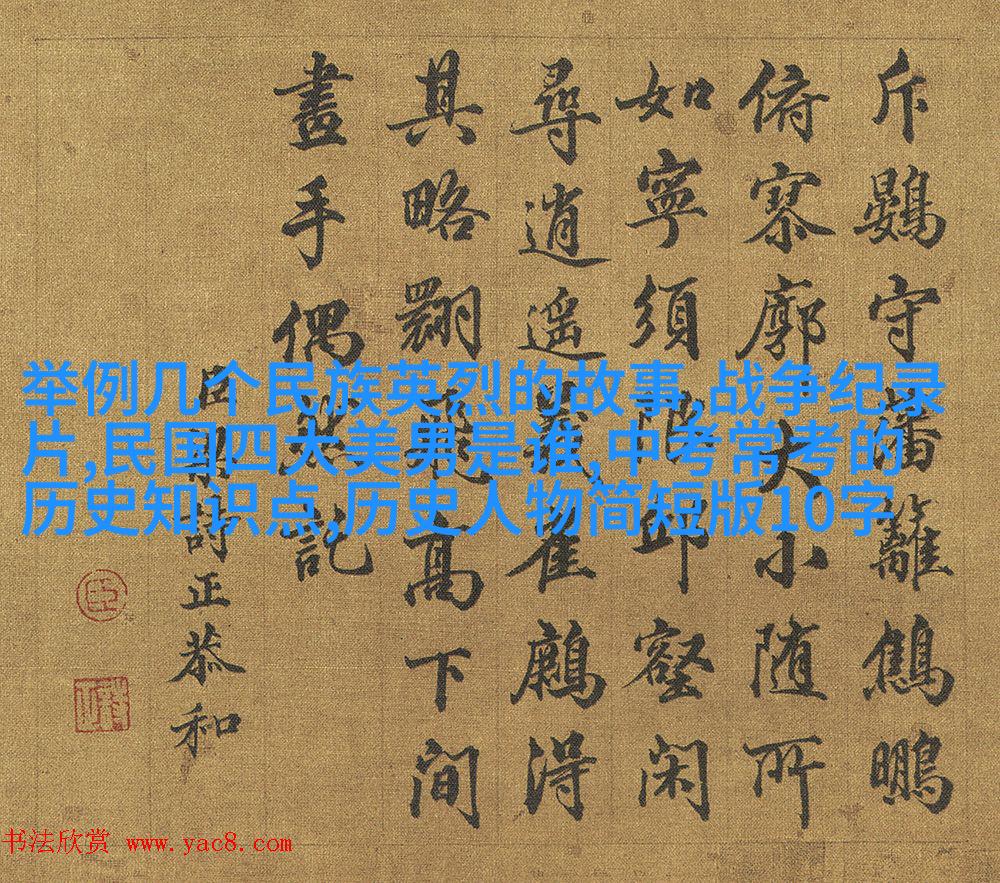 斥鷃守藩籬鷦鵬
俯寥廓大小随所
如寧須限邱壑閑
尋逍遥義雀得
其略翾飛高下間
畫手偶然託
臣梁詩正恭和
举例几个民族英烈的故事,战争纪录
片,民国四大美男是谁,中考常考的
历史知识点,历史人物简短版10字
书法欣赏 www.yac8.com